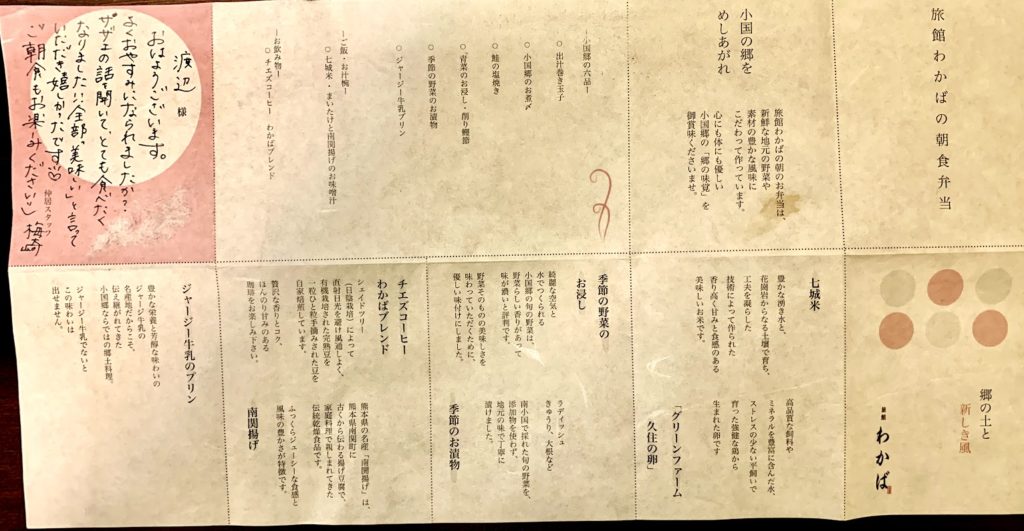 旅館わかばの朝食弁当
小国の郷を
めしあがれ
旅館わかばの朝のお弁当は、
新鮮な地元の野菜や
素材の豊かな風味に
こだわって作っています。
心にも体にも優しい
小国郷の「郷の味覚」を
御賞味くださいませ。
―小国郷の六品―
○ 出汁巻き玉子
○ 小国郷のお煮〆
○ 鮭の塩焼き
○ 青菜のお浸し・削り鰹節
○ 季節の野菜のお漬物
○ ジャージー牛乳プリン
―ご飯・お汁椀―
○ 七城米・まいたけと南関揚げのお味噌汁
―お飲み物―
○ チエズコーヒー わかばブレンド
渡辺 様
おはようございます。
よくおやすみになられましたか?
サザエの話を聞いて、とても食べたく
なりました!!全部、美味しい」と言って
いただき嬉しかったです♡
ご朝食もお楽しみください
仲居スタッフ 梅崎
郷の土と
新しき風
旅館 わかば
七城米
豊かな湧き水と、
花崗岩からなる土壌で育ち、
工夫を凝らした
技術によって作られた
香り高く甘みと食感のある
美味しいお米です。
「グリーンファーム
久住の卵」
高品質な飼料や
ミネラルを豊富に含んだ水、
ストレスの少ない平飼いで
育った強健な鶏から
生まれた卵です
季節の野菜の
お浸し
綺麗な空気と
水でつくられる
小国郷の旬の野菜は、
野菜らしい香りがあって
味が濃いと評判です。
野菜そのものの美味しさを
味わっていただくために、
優しい味付けにしました。
季節のお漬物
ラディッシュ
きゅうり、大根など
南小国で採れた旬の野菜を、
添加物を使わず、
地元の味で丁寧に
漬けました。
チエズコーヒー
わかばブレンド
シェイドツリー
(日陰栽培)によって
直射日光を避け風通しよく、
有機栽培された完熟豆を
一粒ひと粒手摘みされた豆を
自家焙煎しています。
贅沢な香りとコク、
ほんのり甘みのある
珈琲をお楽しみ下さい。
南関揚げ
熊本県の名産「南関揚げ」は、
熊本県南関町に
古くから伝わる揚げ豆腐で、
家庭料理で親しまれてきた
伝統乾燥食品です。
ふっくらジューシーな食感と
風味の豊かさが特徴です。
ジャージー牛乳のプリン
豊かな栄養と芳醇な味わいの
ジャージー牛乳の
名産地だからこそ、
伝え継がれてきた
小国郷ならではの郷土料理。
ジャージー牛乳でないと
この味わいは
出せません。